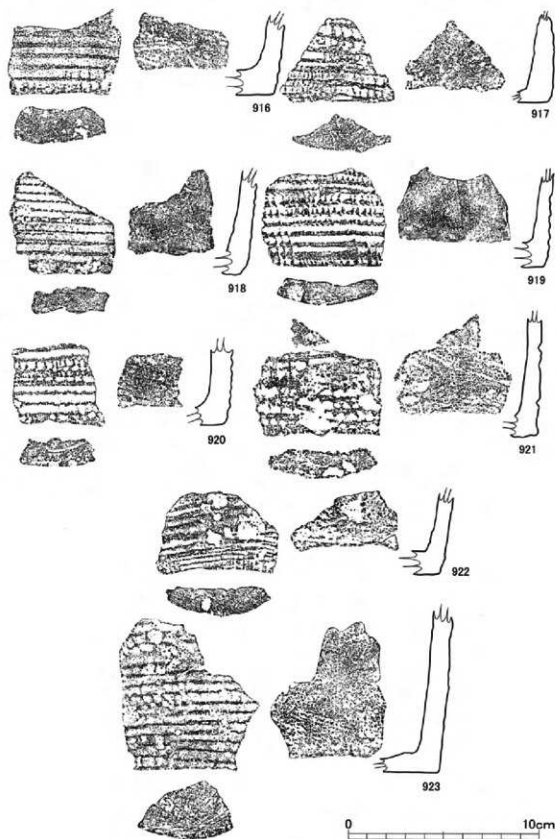 916
917
918
919
920
921
922
923
0 10cm